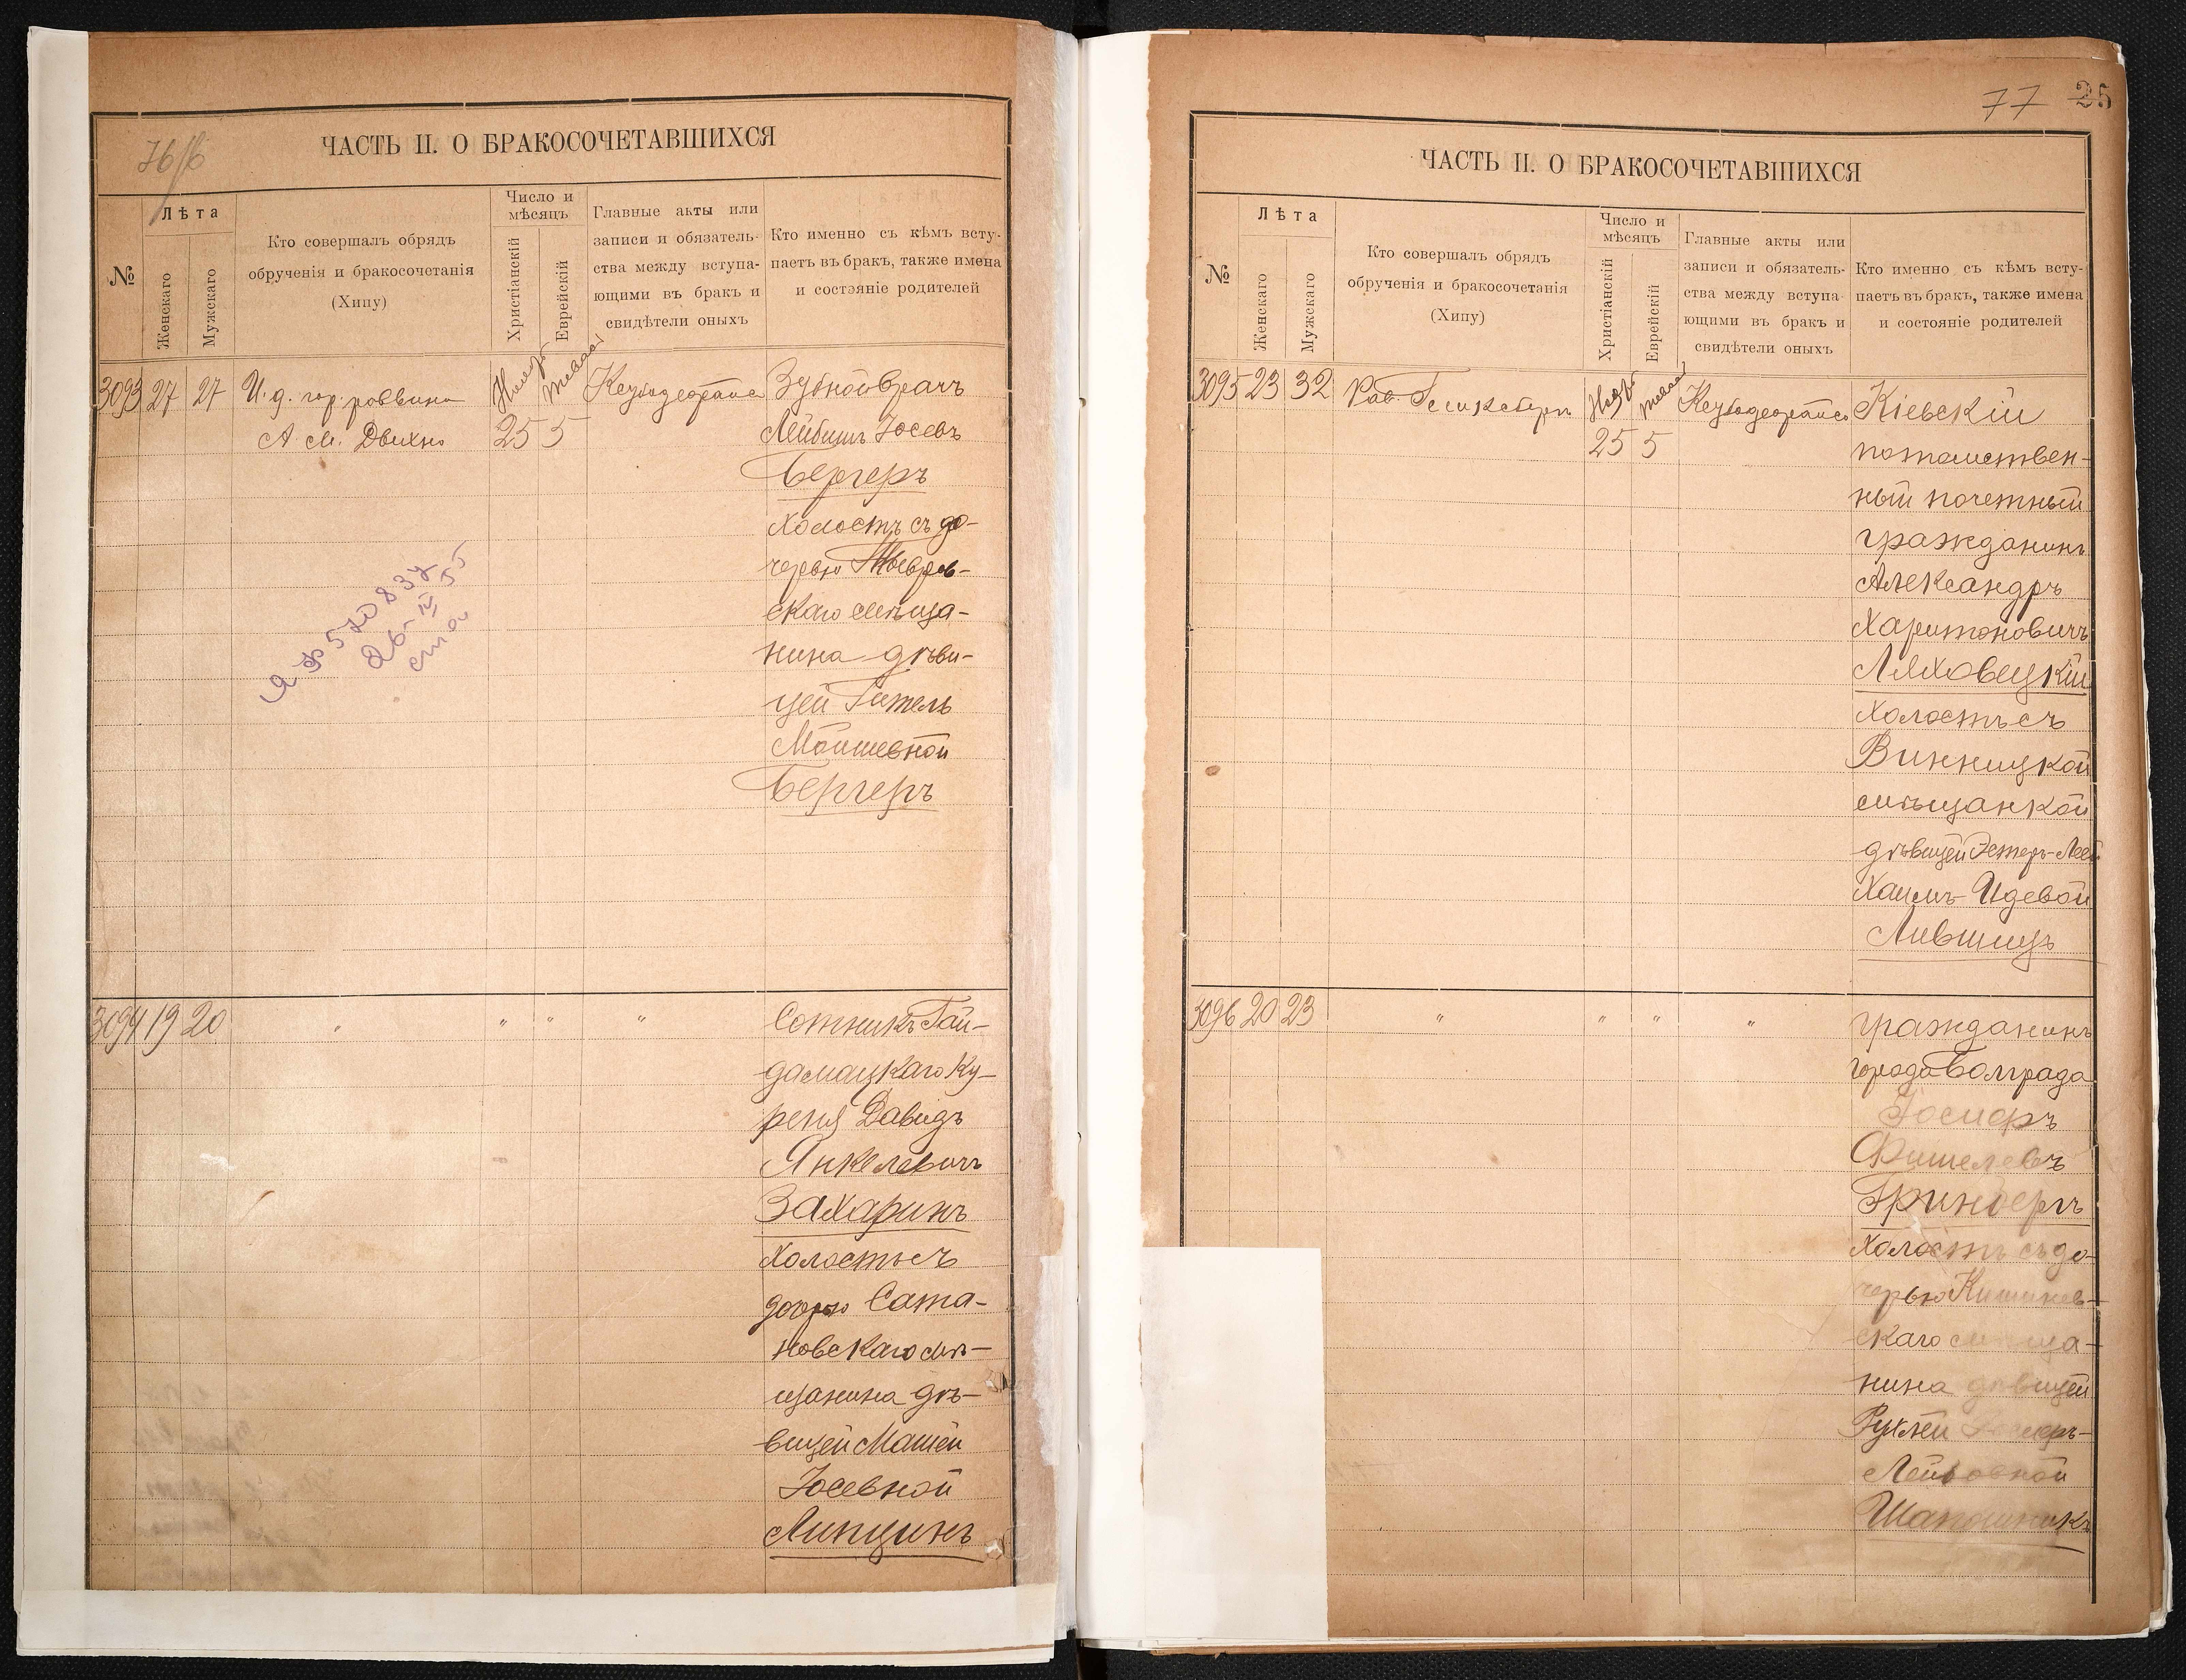 76 об
ЧАСТЬ II. О БРАКОСОЧЕТАВШИХСЯ
№
Лѣта
Женскаго
Мужскаго
Кто совершалъ обрядъ
обрученія и бракосочетанія
(Хипу)
Число и
мѣсяцъ
Христіанскій
Еврейскій
Главные акты или
записи и обязатель-
ства между вступа-
ющими въ бракъ и
свидѣтели оныхъ
Кто именно съ кѣмъ всту-
паетъ въ бракъ, также имена
и состояніе родителей
3093 27 27
И. д. гор. раввина
А. М. Двихно
25 5
Зубной врачъ
Лейбишъ Іосевъ
Бергеръ
холостъ съ до-
черью
скаго мѣща-
нина дѣви-
цей Гитель
Мойшевной
Бергеръ
Я Ф 570837
26-IV 55
3094 19 20
" " " "
Сотникъ Гай-
дамацкаго Ку-
реня Давидъ
Янкелевичъ
Захаринъ
холостъ съ
дочерью Сата-
новскаго мѣ-
щанина дѣ-
вицей Машей
Іосевной
Липцинъ
77 25
ЧАСТЬ II. О БРАКОСОЧЕТАВШИХСЯ
№
Лѣта
Женскаго
Мужскаго
Кто совершалъ обрядъ
обрученія и бракосочетанія
(Хипу)
Число и
мѣсяцъ
Христіанскій
Еврейскій
Главные акты или
записи и обязатель-
ства между вступа-
ющими въ бракъ и
свидѣтели оныхъ
Кто именно съ кѣмъ всту-
паетъ въ бракъ, также имена
и состояніе родителей
3095 23 32
Рав.
25 5
Кіевскій
потомствен-
ный почетный
гражданинъ
Александръ
Харитоновичъ
Ляховецкій
холостъ съ
Винницкой
мѣщанкой
дѣвицей Эстеръ-Леей
Хаимъ-Идевой
Лившицъ
3096 20 23
" " " "
гражданинъ
города Болграда
Іосифъ
Фишелевъ
Гринбергъ
холостъ съ до-
черью Кишинев-
скаго мѣща-
нина дѣвицей
Рухлей Іосифъ-
Лейбовной
Шапошникъ